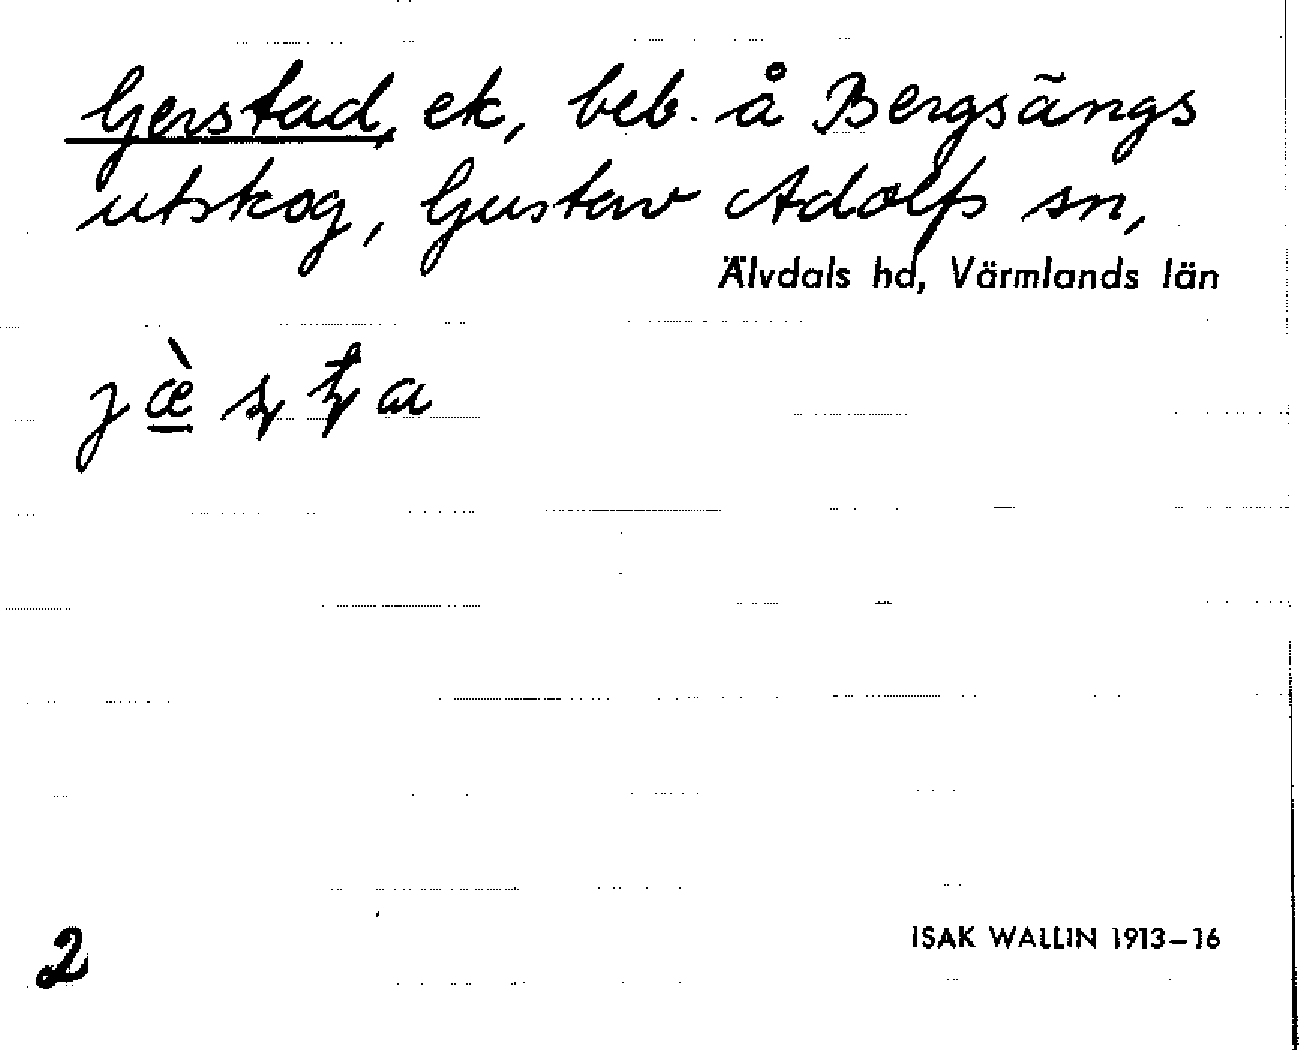 Gerstad, ek, beb. å Bergsängs
utskog, Gustav Adolfs sn,
Älvdals hd, Värmlands län
2
ISAK WALLIN 1913–16